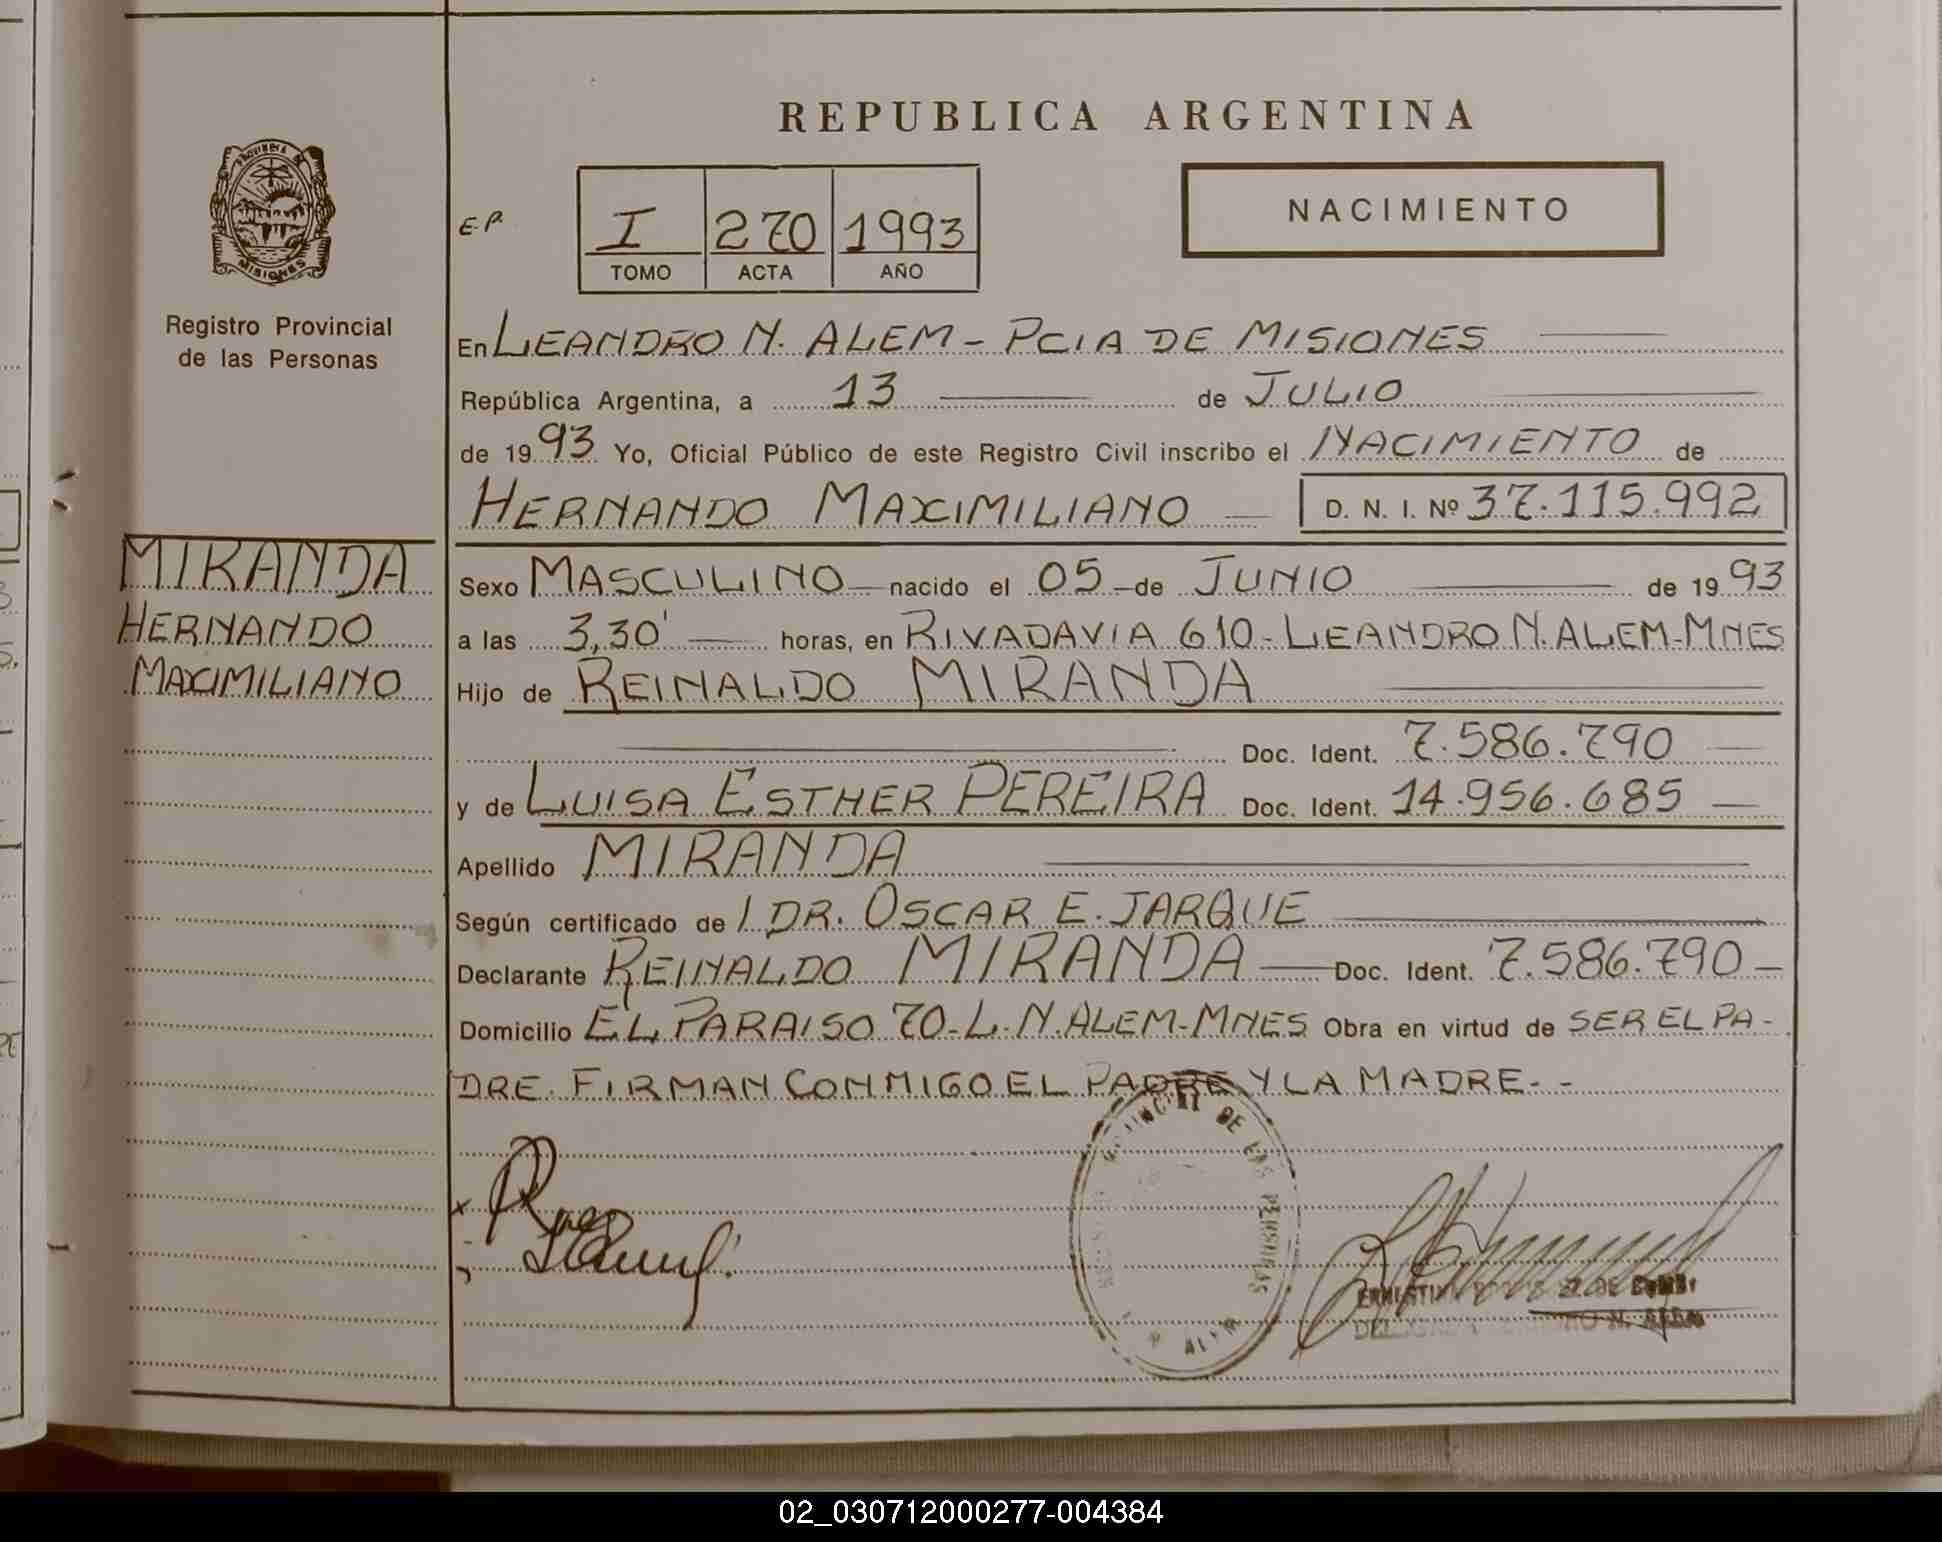 REPUBLICA ARGENTINA
PROVINCIA DE
MISIONES
Registro Provincial
de las Personas
E.P.
I 270 1993
TOMO ACTA AÑO
NACIMIENTO
En LEANDRO N. ALEM - PCIA DE MISIONES
República Argentina, a 13 de JULIO
de 19 93 Yo, Oficial Público de este Registro Civil inscribo el NACIMIENTO de
HERNANDO MAXIMILIANO D. N. I. Nº 37.115.992
MIRANDA
HERNANDO
MAXIMILIANO
Sexo MASCULINO nacido el 05 de JUNIO de 19 93
a las 3,30' horas, en RIVADAVIA 610 - LEANDRO N. ALEM - MNES
Hijo de REINALDO MIRANDA
Doc. Ident. 7.586.790
y de LUISA ESTHER PEREIRA Doc. Ident. 14.956.685
Apellido MIRANDA
Según certificado de / DR. OSCAR E. JARQUE
Declarante REINALDO MIRANDA Doc. Ident. 7.586.790
Domicilio EL PARAISO 70 - L. N. ALEM - MNES Obra en virtud de SER EL PA-
DRE. FIRMAN CONMIGO EL PADRE Y LA MADRE. - -
DE LAS PERSONAS
02_030712000277-004384